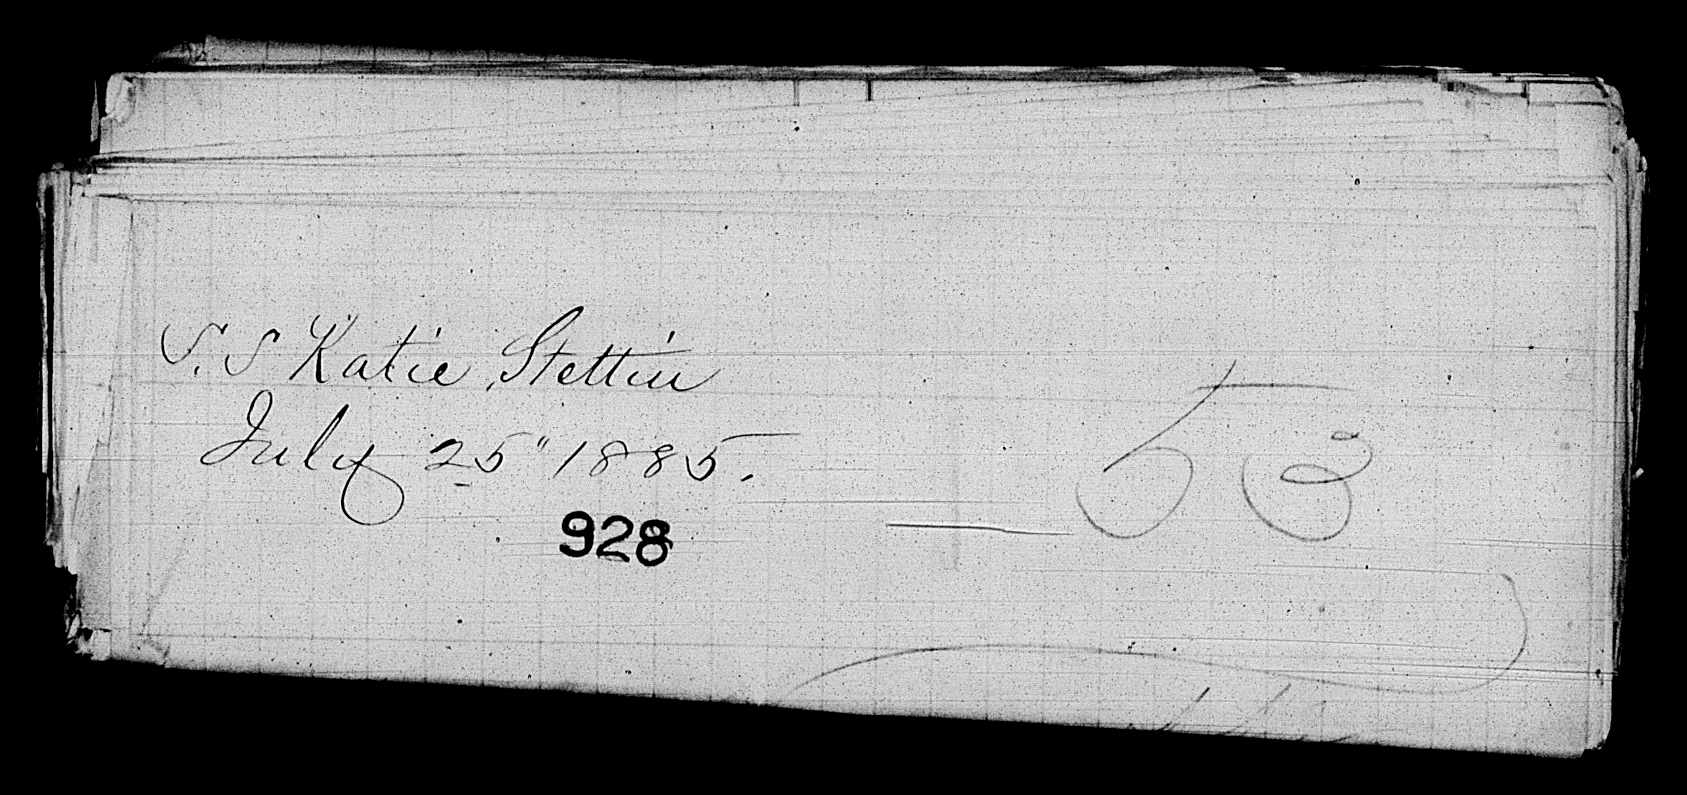 S.S Katie, Stettin
July 25" 1885.
928
53